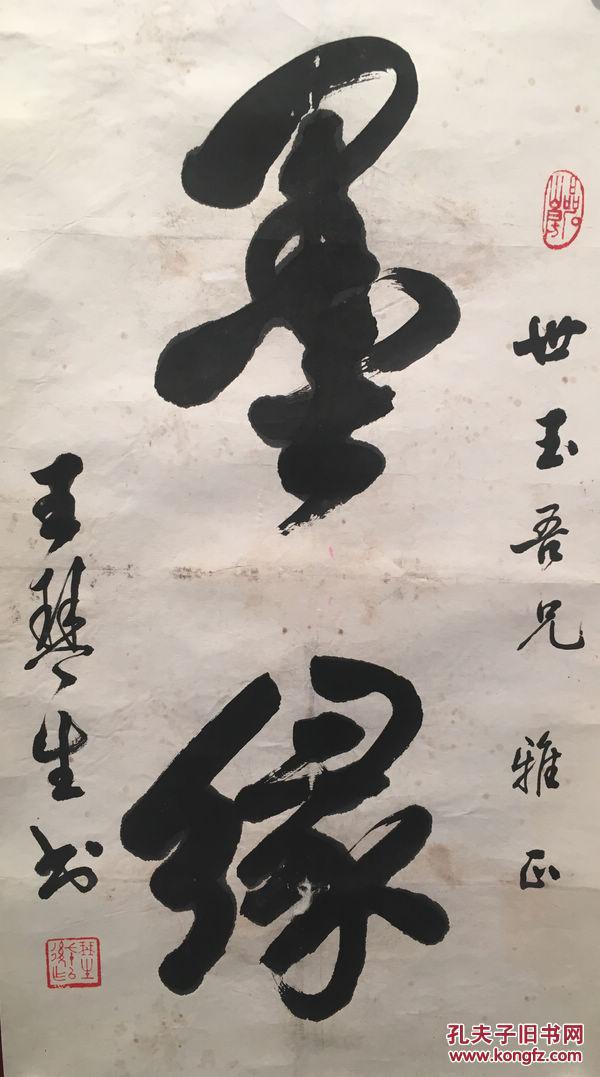 世玉吾兄 雅正
墨缘
王琴生书
孔夫子旧书网
www.kongfz.com